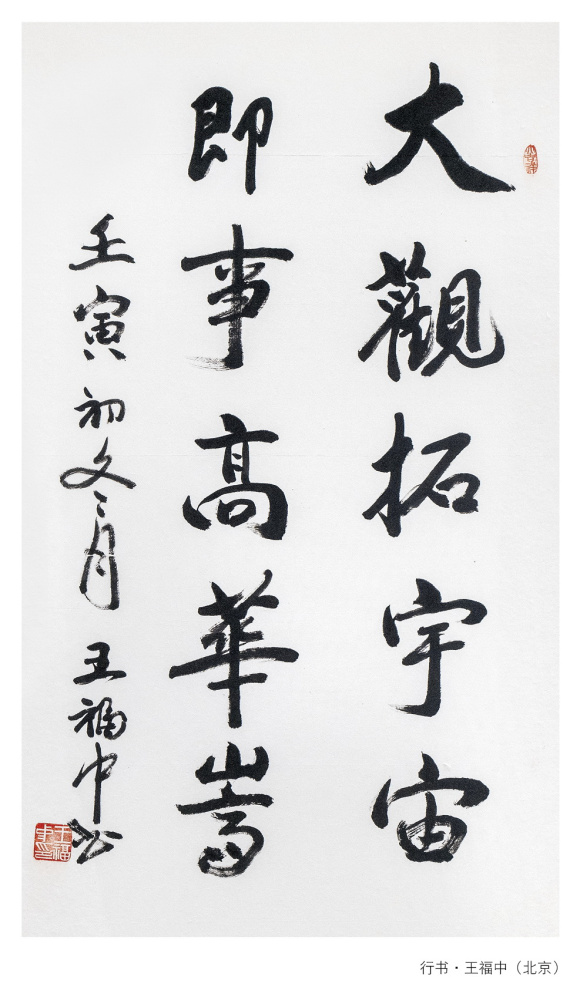 大觀拓宇宙
即事高華嵩
壬寅初冬月 王福中
王福中印
行书·王福中（北京）